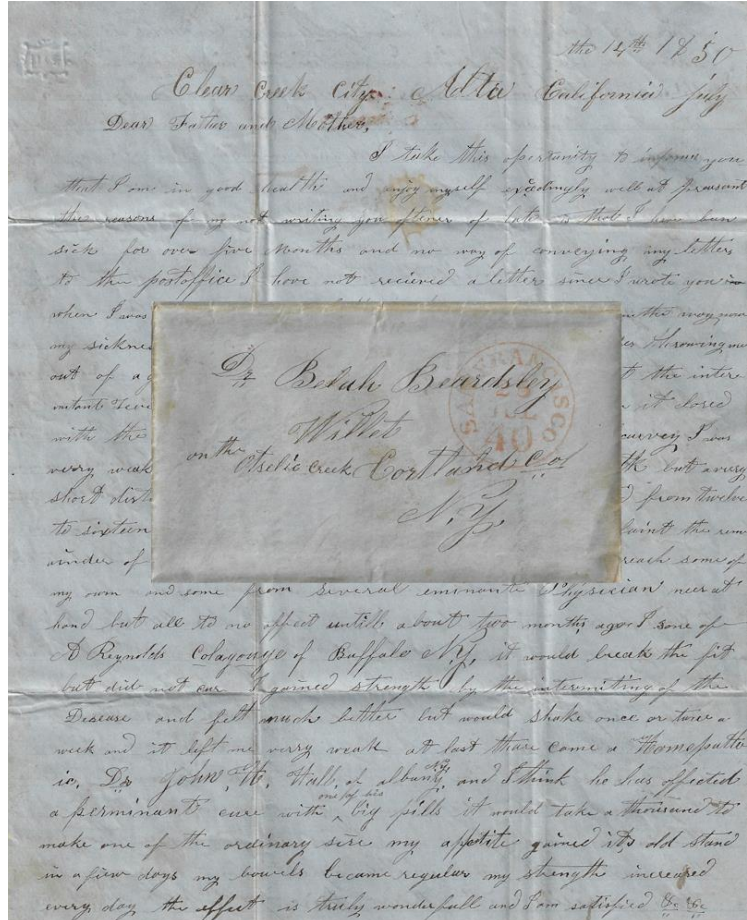 the 14th 1850
Clear Creek City Alta California July
Dear Father and Mother,
I take this opertunity to inform you
that I am in good health and enjoy myself excedingly well at preasant
the reasons of my not writing you oftener of late is that I have bun
sick for over five Months and no way of conveying my letters
to the postoffice I have not recieved a letter since I wrote you
when I was
my sickne
out of a g the inte
it closed
with the I was
verry weak but a very
short dist from twelve
to sixteen the rem
ainder of reach some of
my own and some from several eminante Physician neer at
hand but all to no affect untill about two months ago I some of
A Reynolds Colagouge of Buffalo N.Y. it would break the fit
but did not cur I gained strength by the intermiting of the
Desease and felt much better but would shake once or twice a
week and it left me verry weak at last thare come a Homepatte
ic, Dr John, H, Hall, of albany, N.Y. and I think he has effected
a perminant cure with one of his big pills it would take a thousand to
make one of the ordinary sise my appetite gained its old stand
in a few days my bowels became regular my strength increased
every day the effect is truly wonderfull and I am satisfied &c &c
Dr Belah Beardsley
Willet
on the Otselic Creek Cortland Co.
N.Y.
SAN FRANCISCO
JUL
40